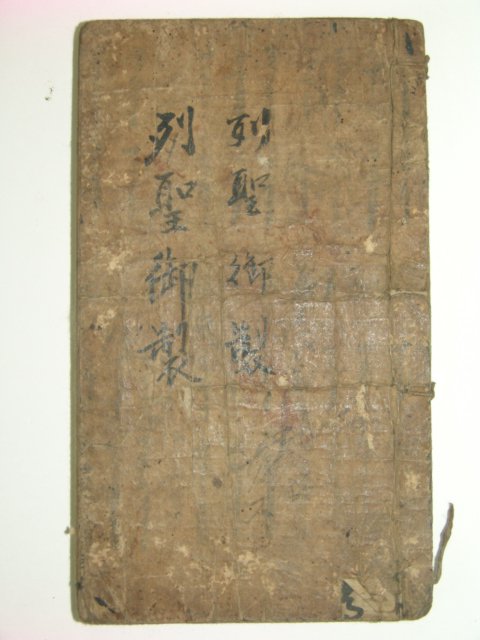 列聖御製
列聖御製